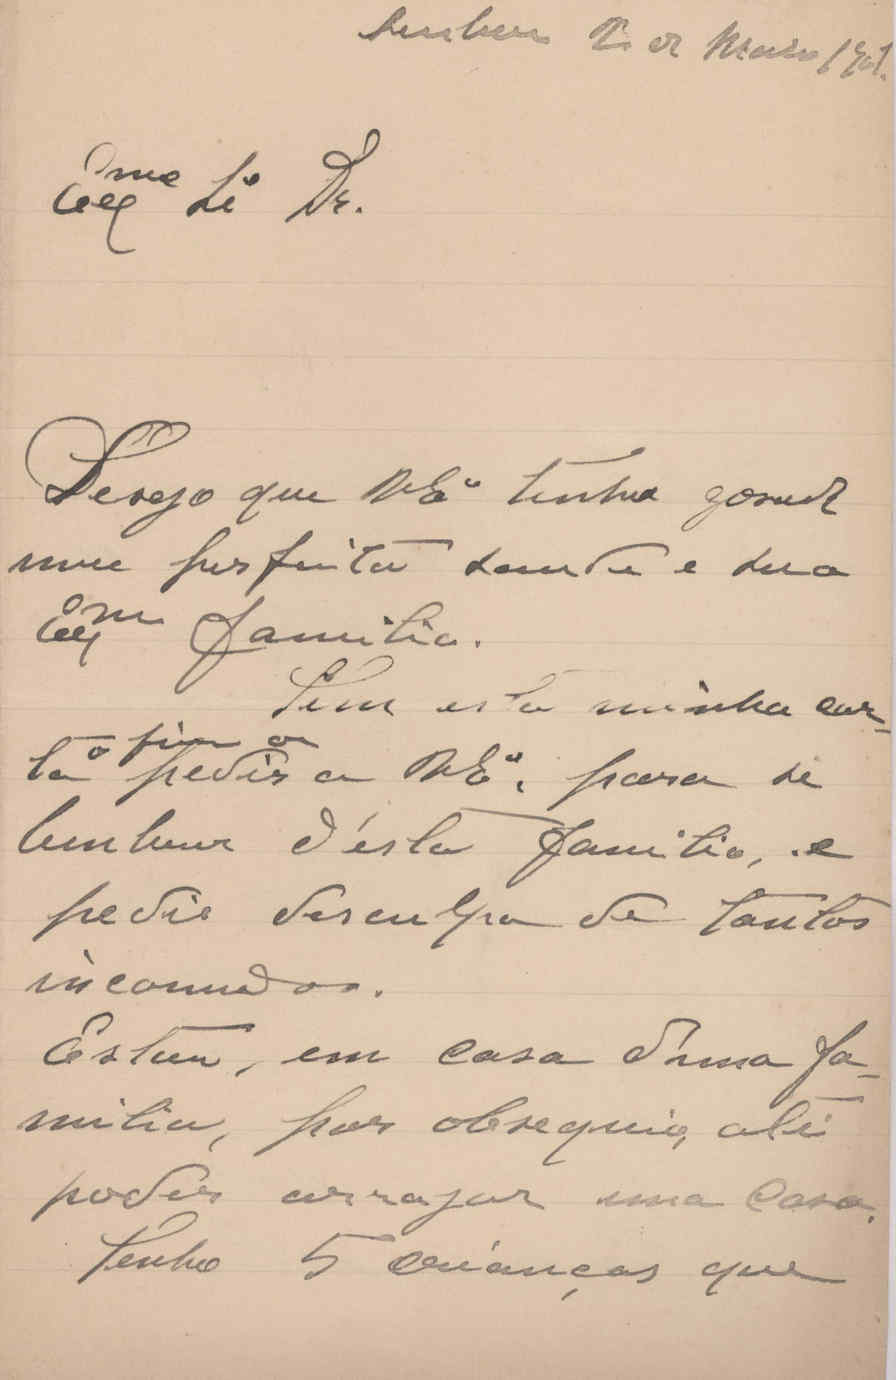 de Maio 1901.
Exmo Sr Dr.
Desejo que V Exa tenha gosado
uma perfeita saude e sua
Exma familia.
Tem esta minha car-
ta o fim de pedir a V Exa, para se
lembrar d'esta familia, e
pedir desculpa de tantos
incomodos.
Estou, em casa d'uma fa-
milia, por obsequio, até
poder arrajar uma casa.
Tenho 5 crianças que